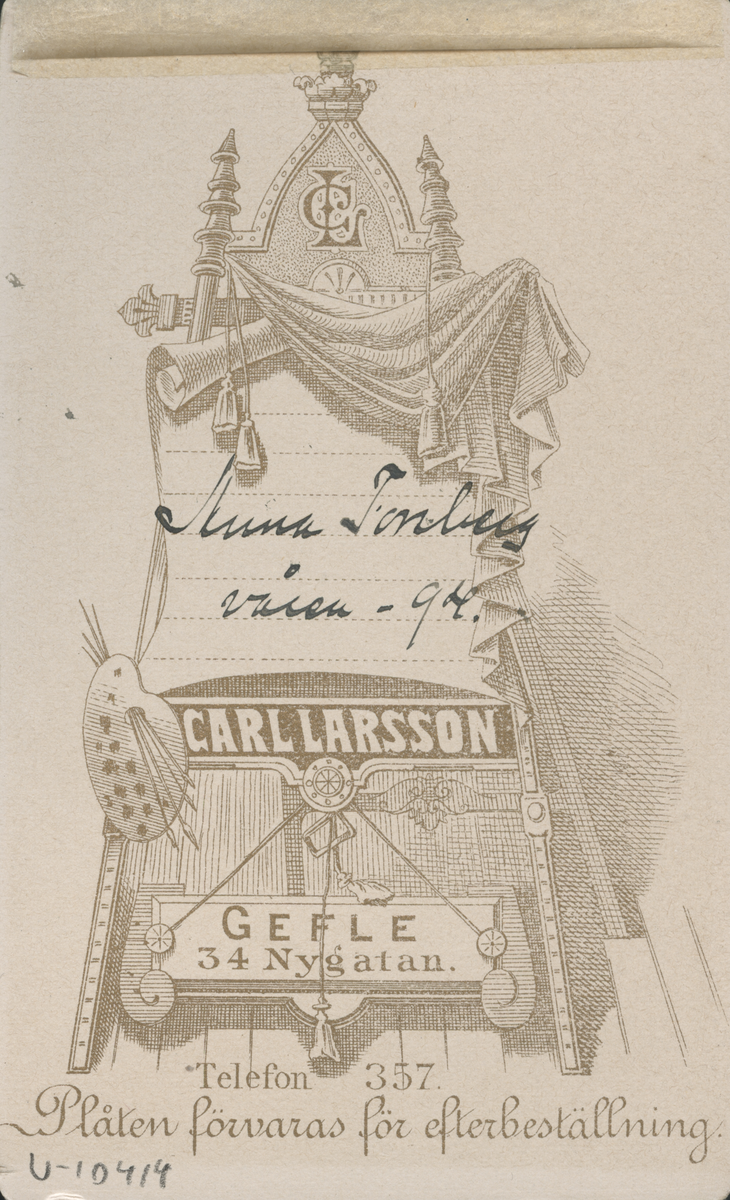 CL
Anna Forsberg
våren - 94.
CARL LARSSON
GEFLE
34 Nygatan.
Telefon 357.
Plåten förvaras för efterbeställning.
U-10414